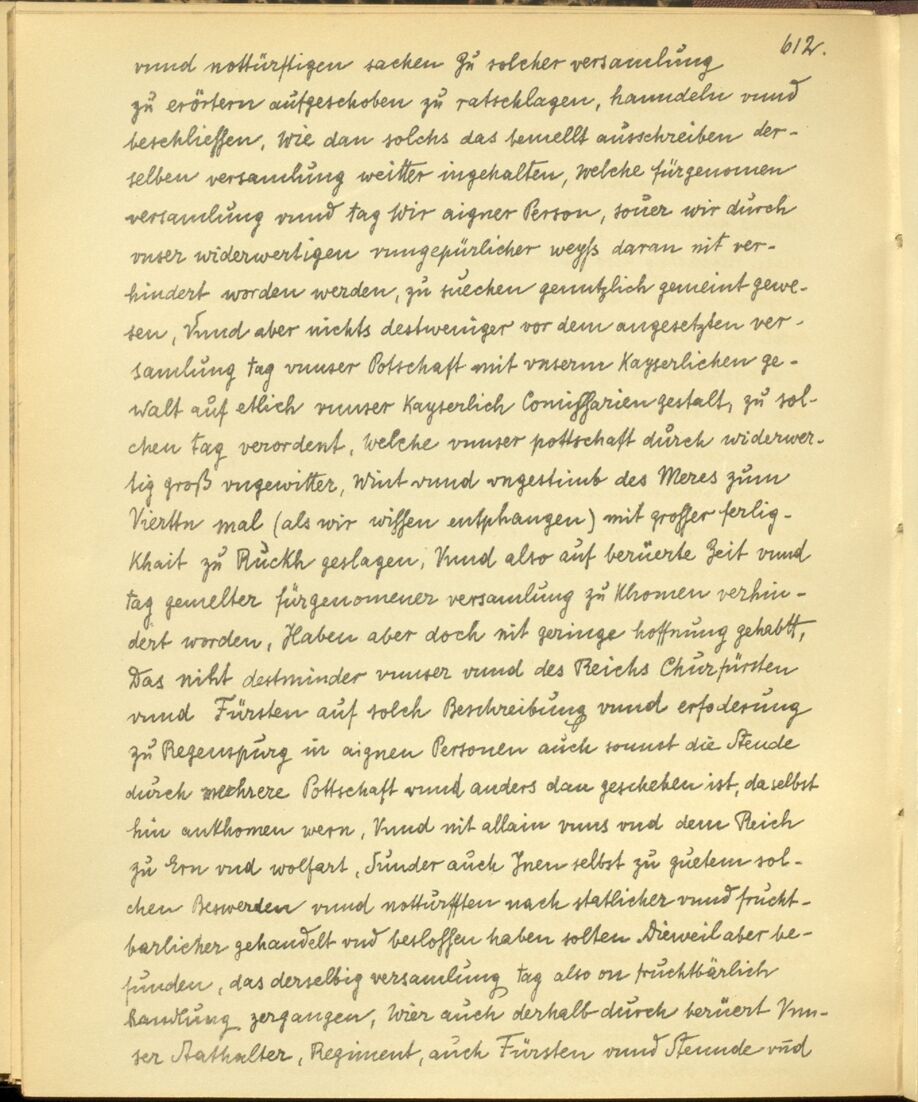 612.
vnnd nottürftigen sachen Zu solcher versamlung
zu erörtern aufgeschoben zu ratschlagen, hanndeln vnnd
beschlieſſen, Wie dan solchs das bemellt ausschreiben der-
selben versamlung weitter ingehalten, Welche fürgenomen
versamlung vnnd tag Wir aigner Person, souer wir durch
vnser widerwertigen vnngepürlicher weyſs daran nit ver-
hindert worden werden, zu suechen genntzlich gemeint gewe-
sen, Vnnd aber nichts destweniger vor dem angesetzten ver-
samlung tag vnnser Potschaft mit vnserm Kayserlichen ge-
walt auf etlich vnnser Kayserlich Comiſſarien gestalt, zu sol-
chen tag verordent, Welche vnnser pottschaft durch widerwer-
tig groß vngewitter, Wint vnnd vngestimb des Meres zum
Viertten mal (als wir wiſſen entphangen) mit groſſer ferlig-
Khait zu Ruckh geslagen, Vnnd also auf berüerte Zeit vnnd
tag gemelter fürgenomener versamlung zu Khomen verhin-
dert worden, Haben aber doch nit geringe hoffnung gehabtt,
Das niht destminder vnnser vnnd des Reichs Churfürsten
vnnd Fürsten auf solch Beschreibung vnnd erfoderung
zu Regenspurg in aignen Personen auch sonnst die Stende
durch mehrere Pottschaft vnnd anders dan geschehen ist, daselbst
hin ankhomen wern, Vnnd nit allain vnns vnd dem Reich
zu Ern vnd wolfart, Sunder auch Jnen selbst zu guetem sol-
chen Beswerden vnnd notturfften nach statlicher vnnd frucht-
barlicher gehandelt vnd besloſſen haben solten. Dieweil aber be-
funden, das derselbig versamlung tag also on fruchtbärlich
handlung zergangen, Wier auch derhalb durch berüert Vnn-
ser Stathalter, Regiment, auch Fürsten vnnd Stennde vn̄d